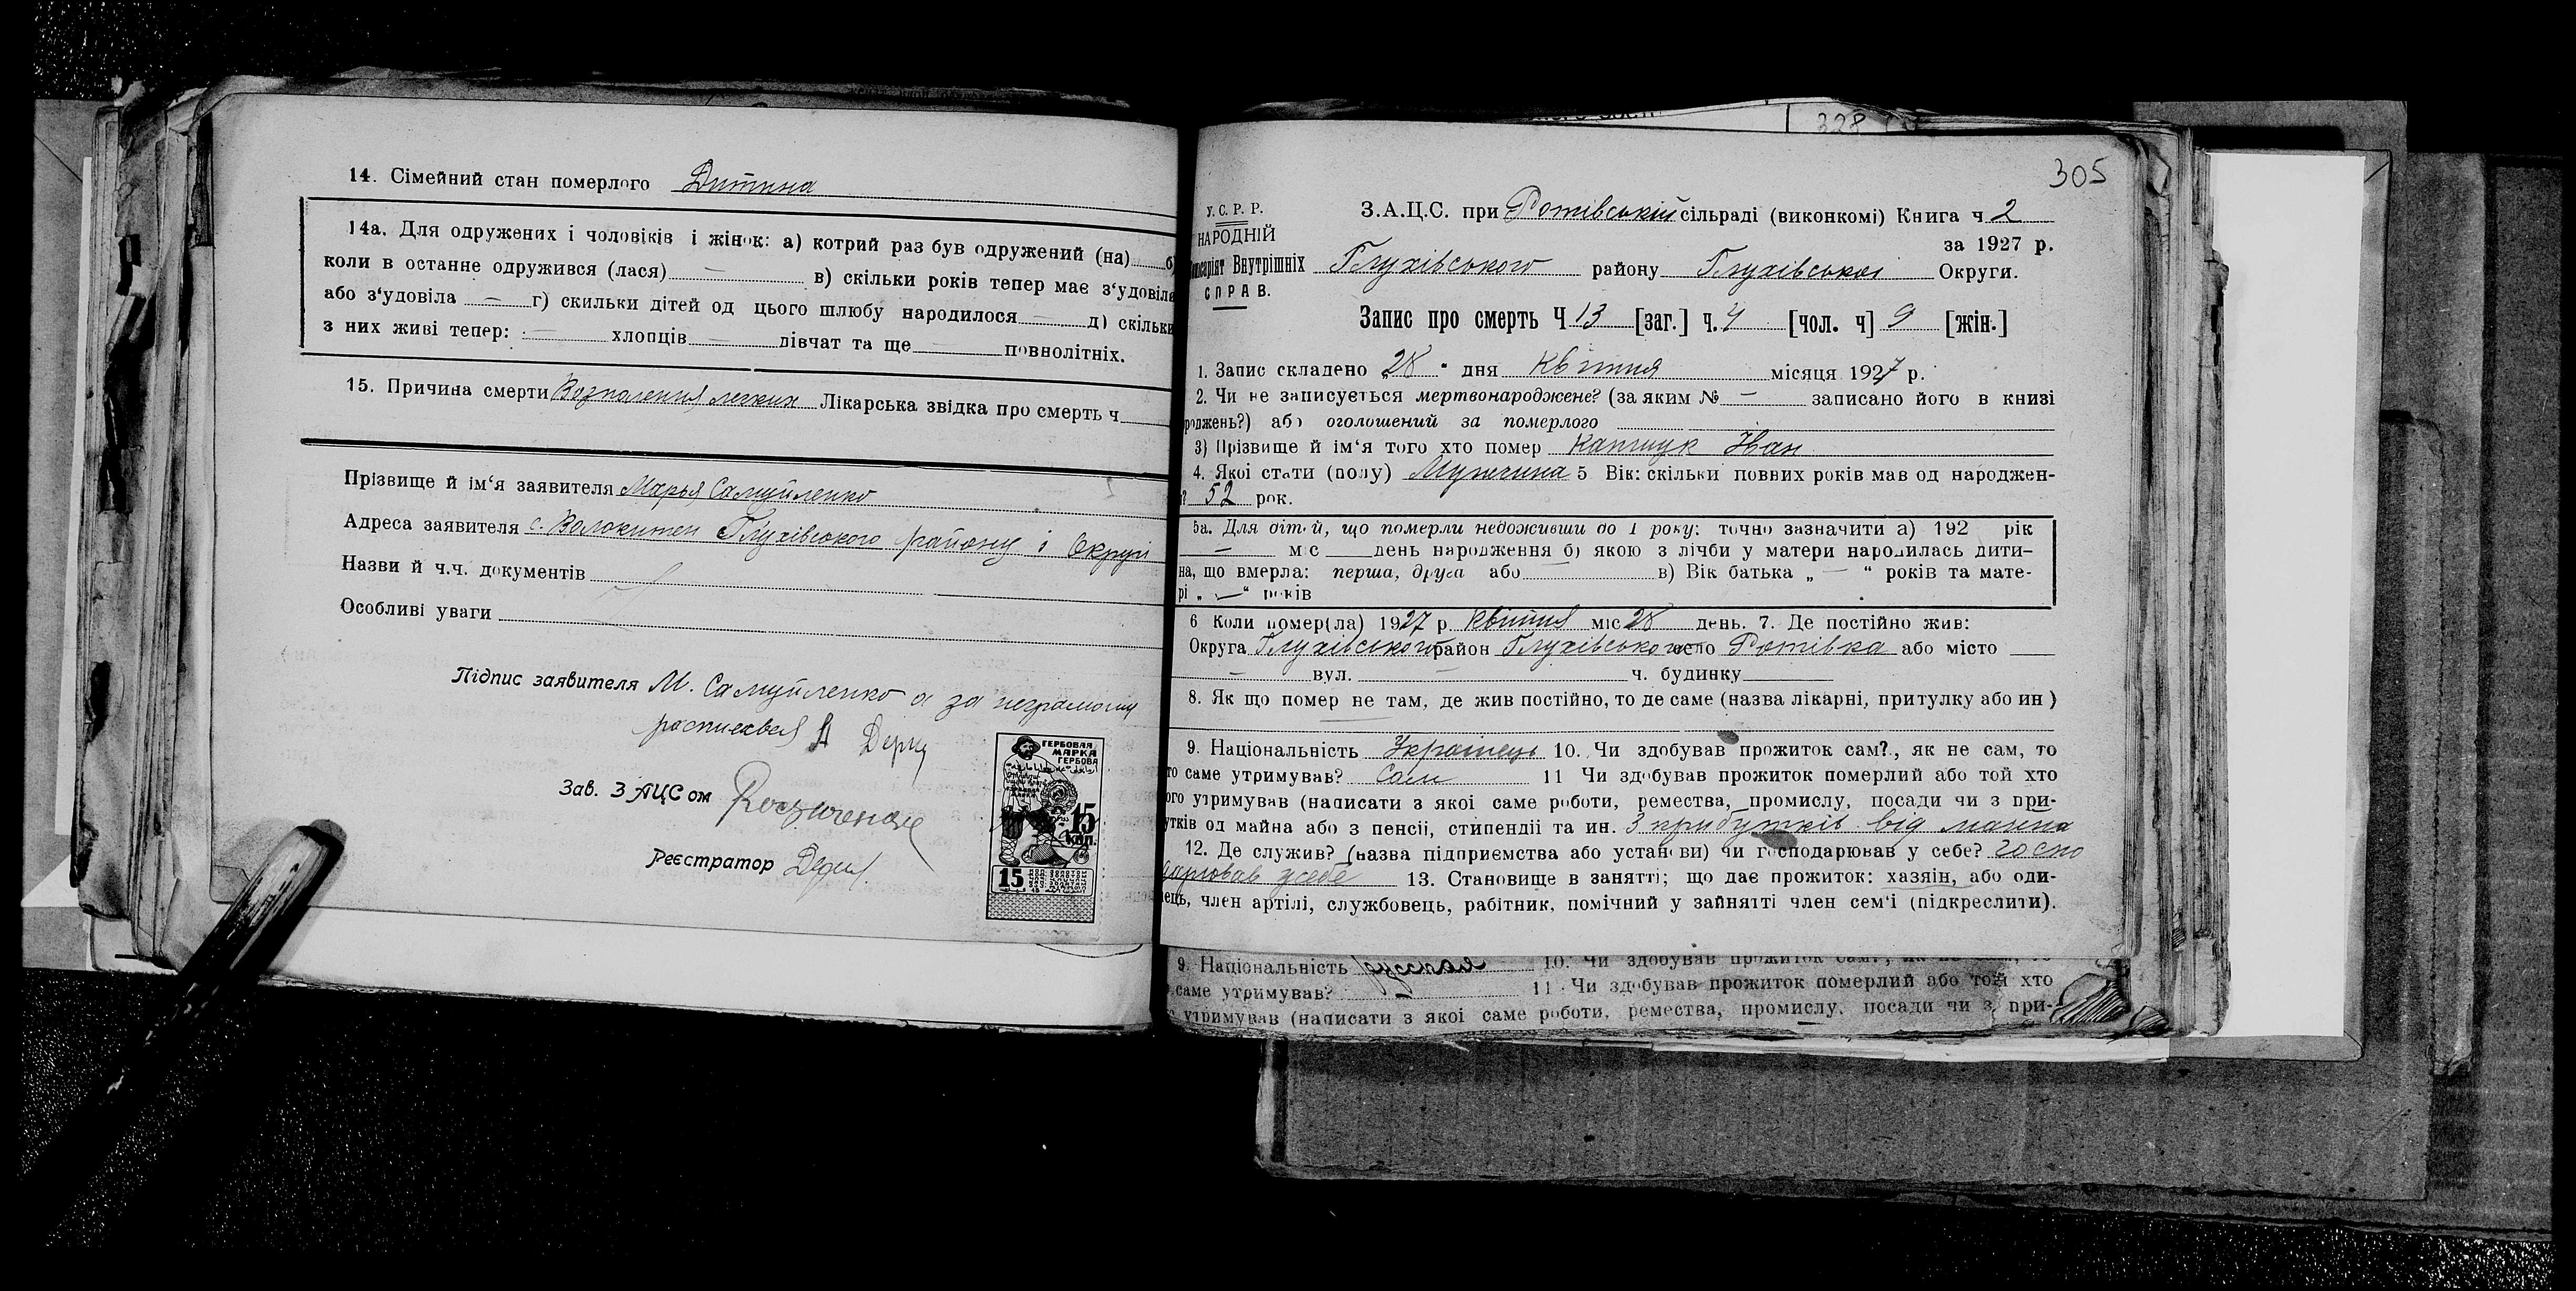 14. Сімейний стан померлого Дитина
14а. Для одружених і чоловіків і жінок: а) котрий раз був одружений (на) б)
коли в останне одружився (лася) — в) скільки років тепер має з'удовіла
або з'удовіла — г) скильки дітей од цього шлюбу народилося — д) скільки
з них живі тепер: — хлопців — дівчат та ще — повнолітніх.
15. Причина смерти Возпаления легких Лікарська звідка про смерть ч
Прізвище й ім'я заявителя Марья Самуйленко
Адреса заявителя с. Волокитен Глухівського району і Округи
Назви й ч.ч. документів
Особливі уваги
Підпис заявителя М. Самуйленко а за неграмотну
росписавсь Д
Зав. ЗАЦСом
Реєстратор
ГЕРБОВАЯ
МАРКА
ГЕРБОВА
15
коп.
15
328
305
У.С.Р.Р.
НАРОДНІЙ
Комісаріят Внутрішніх
СПРАВ.
З.А.Ц.С. при Ротівській сільраді (виконкомі) Книга ч 2
за 1927 р.
Глухівського району Глухівської Округи.
Запис про смерть Ч 13 [заг.] ч. 4 [чол. ч] 9 [жін.]
1. Запис складено „28" дня Квітня місяця 1927 р.
2. Чи не записується мертвонароджене? (за яким № — записано його в книзі
роджень?) або оголошений за померлого
3) Прізвище й ім'я того хто помер Капшук Іван
4. Якої стати (полу) Мужчина 5 Вік: скільки повних років мав од народжен-
52 рок.
5а. Для дітей, що померли недоживши до 1 року: точно зазначити а) 192 рік
— міс день народження б) якою з лічби у матери народилась дити-
на, що вмерла: перша, друга або — в) Вік батька „ — " років та мате-
рі „ — " років
6 Коли помер(ла) 1927 р. Квітня міс 28 день. 7. Де постійно жив:
Округа Глухівського район Глухівського село Ротівка або місто —
— вул. — ч. будинку
8. Як що помер не там, де жив постійно, то де саме (назва лікарні, притулку або ин)
9. Національність Українець 10. Чи здобував прожиток сам?, як не сам, то
то саме утримував? Сам 11 Чи здобував прожиток померлий або той хто
ого утримував (написати з якої саме роботи, ремества, промислу, посади чи з при-
утків од майна або з пенсії, стипендії та ин. З прибутків від майна
12. Де служив? (назва підприємства або установи) чи господарював у себе? госпо
дарював у себе 13. Становище в занятті; що дає прожиток: хазяїн, або оди-
нець, член артілі, службовець, рабітник, помічний у зайнятті член сем'ї (підкреслити).
9. Національність 10. Чи здобував прожиток сам?, як не сам, то
саме утримував? 11 Чи здобував прожиток померлий або той хто
утримував (написати з якої саме роботи, ремества, промислу, посади чи з при-